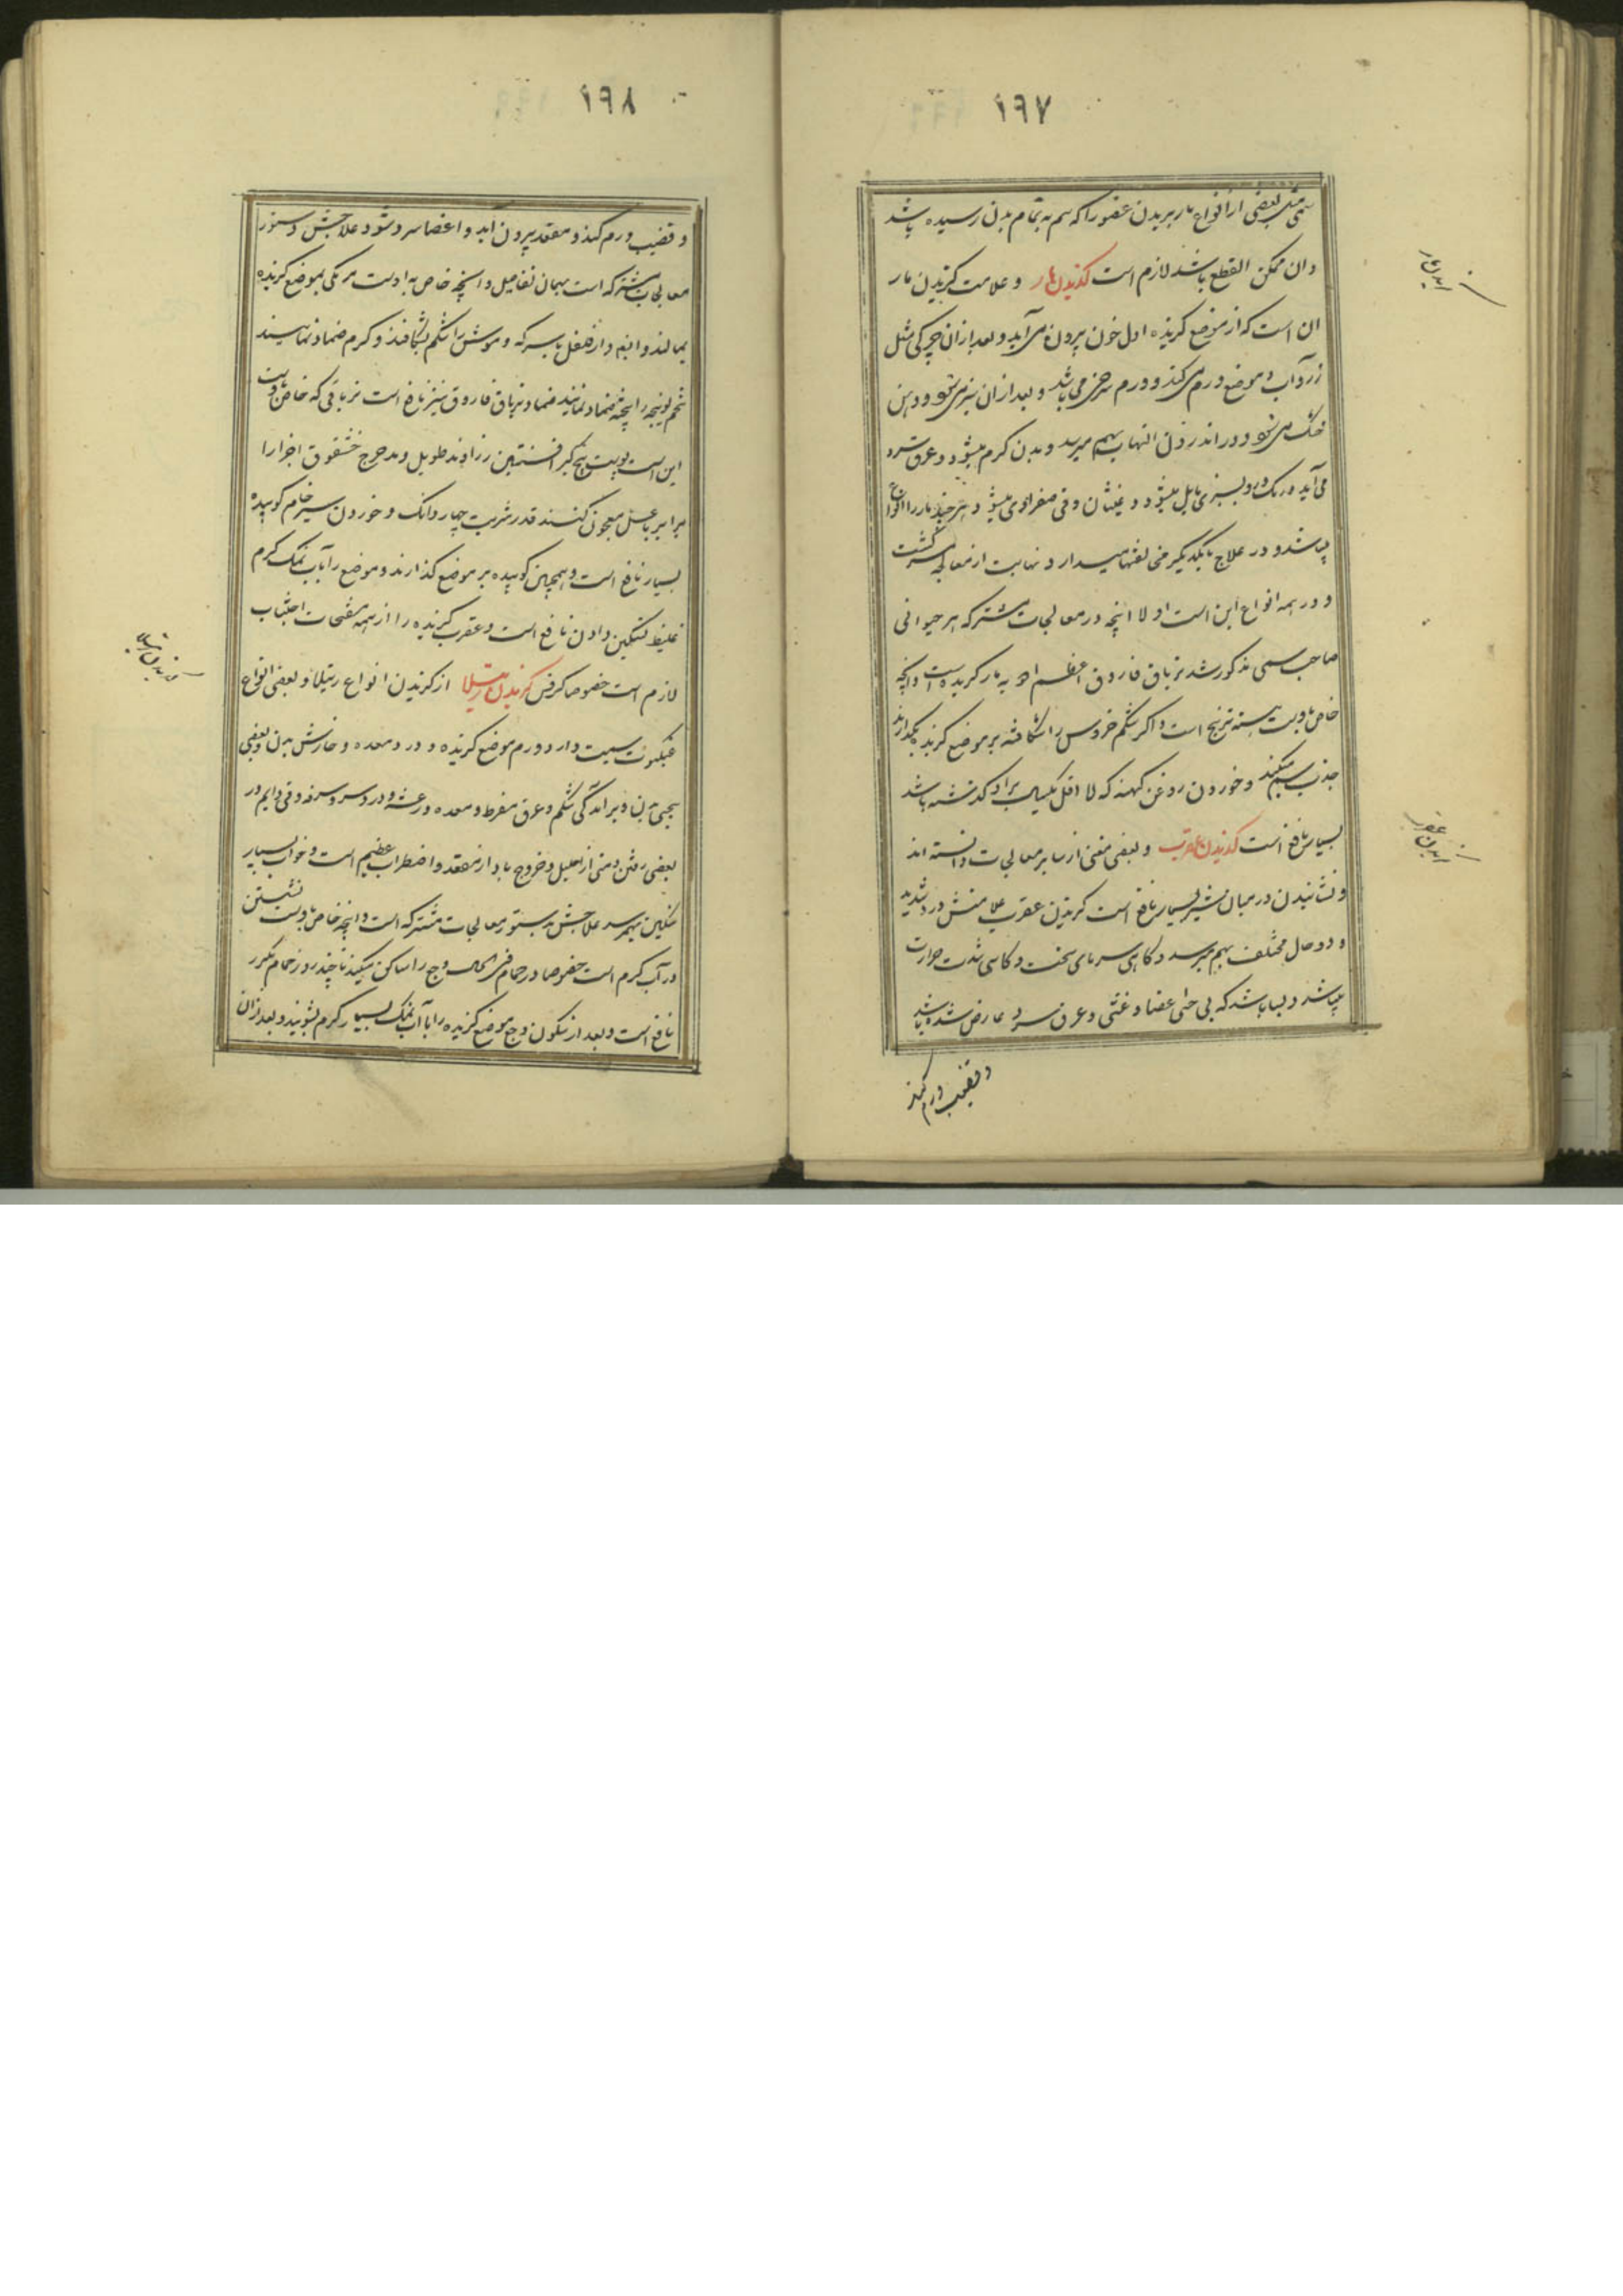 ۱۹۷
سمی مثل بعضی از انواع مار بریدن عضو را که سم به تمام بدن رسیده باشد
و ان ممکن القطع باشد لازم است گزیدن مار و علامت گزیدن مار
ان است که از موضع گزیده اول خون بیرون می آید و بعد از ان چرکی مثل
زرد آب و موضع ورم می کند و ورم سرخ می باشد و بعد از ان سبز می شود و دهن
خشک می شود و در اندرون التهاب بهم میرسد و بدن گرم میشود و عرق سرد
می آید و رنگ رو بسبزی مایل میشود و غثیان و قی صفراوی میشود و هر چند مار را انواع
میباشد و در علاج با یکدیگر مخالفتها میدارد نهایت از معالجه سرگشت
و در همه انواع این است اولا انچه در معالجات مشترکه هر حیوانی
صاحب سمی مذکور شد تریاق فاروق اعظم ادویه مار گزیده است و انچه
خاص باوست پسته ترنج است و اگر شکم خروس را شکافته بر موضع گزیده بگذارند
جذب سم میکند و خوردن روغن کهنه که لا اقل یکسال بر او گذشته باشد
بسیار نافع است گزیدن عقرب و بعضی مغنی از سایر معالجات دانسته اند
و نشانیدن در میان شیر بسیار نافع است گزیدن عقرب علامتش درد شدید
و دو حال مختلف بهم میرسد گاهی سرمای سخت و گاهی شدت حرارت
میباشد و بسا باشد که بی حسی اعضا و غشی و عرق سرد عارض شده باشد
و قضیب ورم کند
گزیدن مار
گزیدن عقرب
۱۹۸
و قضیب ورم کند و مقعد بیرون آید و اعضا سرد شود و علاجش دستور
معالجات مشترکه است بهمان تفاصیل و انچه خاص به اوست مر مکی بموضع گزیده
بمالند و ایضا دار فلفل با سرکه و موش را شکم بشکافند و گرم ضماد نمایند
تخم را پخته ضماد نمایند ضماد تریاق فاروق نیز نافع است تریاقی که خاص باوست
این است پوست بیخ کبر افسنتین زراوند طویل و مدحرج اجزا را
برابر با عسل معجون کنند قدر شربت چهار دانگ و خوردن سیر خام کوبیده
بسیار نافع است و همچنین کوبیده بر موضع گذارند و موضع را بآب نمک گرم
غلیظ تسکین دادن نافع است و عقرب گزیده را از همه مفتحات اجتناب
لازم است خصوصا کرفس گزیدن رتیلا از گزیدن انواع رتیلا و بعضی انواع
عنکبوت سمیت دارد ورم موضع گزیده و درد معده و خارش بدن و بعضی
بیحسی بدن و برآمدگی شکم و عرق مفرط و معده و رعشه و درد سر و سرفه و قی دایم و در
بعضی رفتن منی از احلیل و خروج باد از مقعد و اضطراب عظیم است و خواب بسیار
سنگین بهم میرسد علاجش بدستور معالجات مشترکه است و انچه خاص باوست نشستن
در آب گرم است خصوصا در حمام فی الحال وجع را ساکن میکند تا چند روز حمام مکرر
نافع است و بعد از سکون وجع موضع گزیده را با آب نمک بسیار گرم بشویند و بعد از ان
گزیدن رتیلا